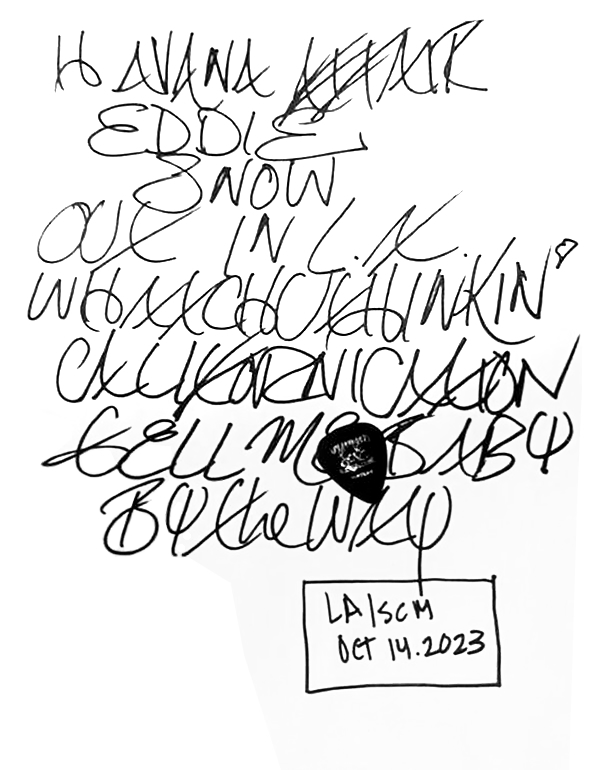 HAVANA AFFAIR
EDDIE
SNOW
OUT IN L.A.
WHATCHUTHINKIN'
CALIFORNICATION
TELL ME BABY
BY the WAY
LA/SCM
OCT 14.2023